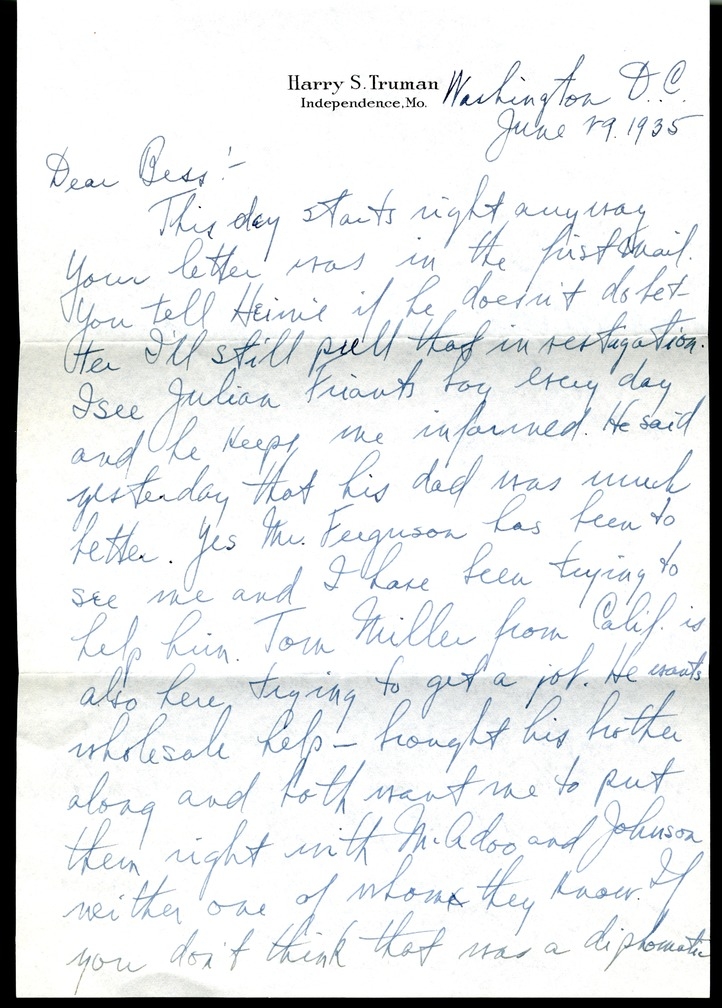 Harry S. Truman
Independence, Mo.
Washington D.C.
June 29. 1935
Dear Bess:-
This day starts right anyway
Your letter was in the first mail.
You tell Heinie if he doesn't do bet-
ter I'll still pull that investigation.
I see Julian Friants boy every day
and he keeps me informed. He said
yesterday that his dad was much
better. Yes Mr. Ferguson has been to
see me and I have been trying to
help him. Tom Miller from Calif. is
also here trying to get a job. He wants
wholesale help – brought his brother
along and both want me to put
them right with McAdoo and Johnson
neither one of whom they know. If
you don't think that was a diplomatic